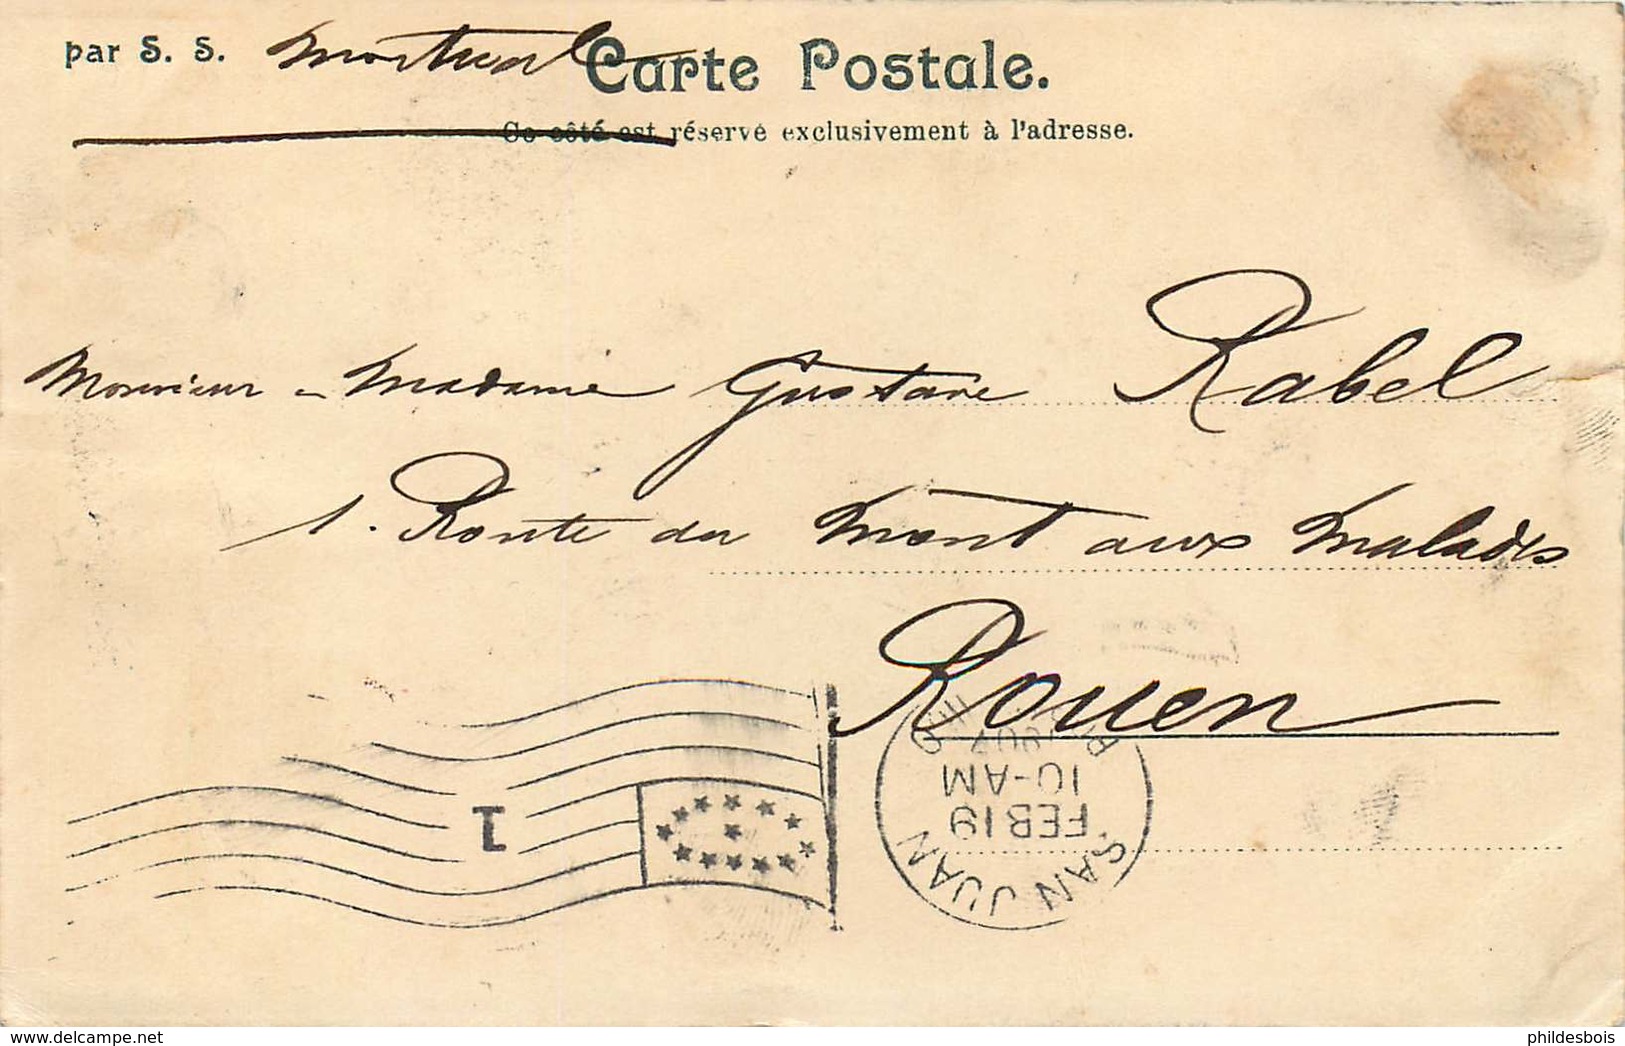 par S. S. Montreal
Carte Postale.
Ce côté est réservé exclusivement à l'adresse.
Monsieur Madame Gustave Rabel
1. Route du Mont aux Malades
Rouen
1
SAN JUAN
FEB 19
10-AM
1907
P. R.
www.delcampe.net
phildesbois